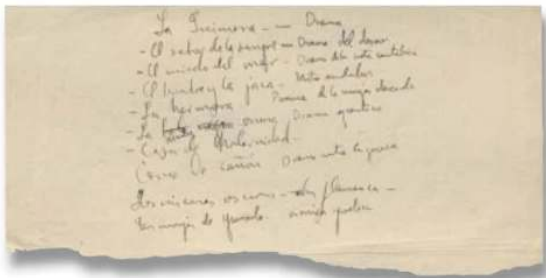 La Quimera. — Drama
- El sabor de la sangre — Drama del deseo
- El miedo del mar — Drama de la costa cantábrica
- El hombre y la jaca — Mito andaluz
- La hermosa Poema de la mujer deseada
- La oscura Drama
- Casa de Maternidad.
Carne de cañón Drama contra la guerra
Los rincones oscuros — flamenca —
Las monjas de Granada. crónica poética